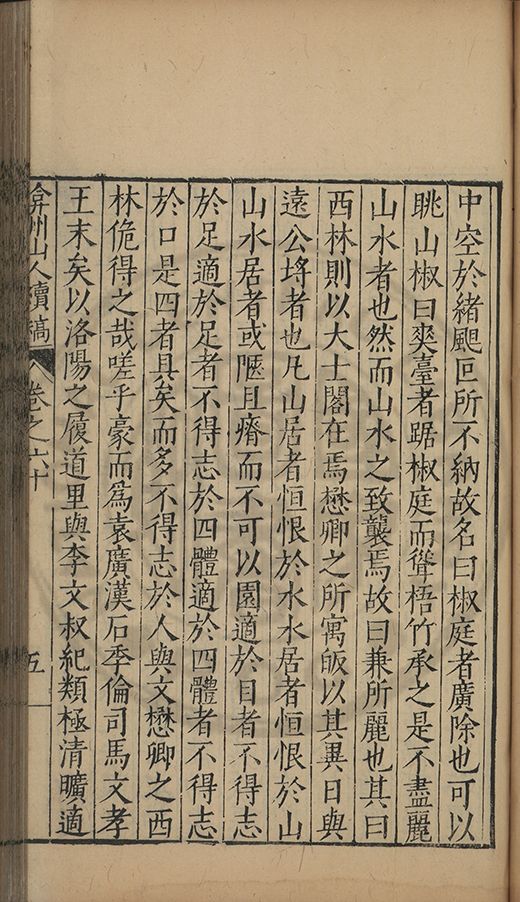 中空於緒颸囘所不納故名曰椒庭者廣除也可以
眺山椒曰爽臺者踞椒庭而聳梧竹承之是不盡麗
山水者也然而山水之致襲焉故曰兼所麗也其曰
西林則以大士閣在焉懋卿之所寓皈以其異日與
遠公埒者也凡山居者恒恨於水水居者恒恨於山
山水居者或陿且瘠而不可以園適於目者不得志
於足適於足者不得志於四體適於四體者不得志
於口是四者具矣而多不得志於人與文懋卿之西
林佹得之哉嗟乎豪而爲袁廣漢石季倫司馬文孝
王末矣以洛陽之履道里與李文叔紀類極清曠適
弇州山人續稿 卷之六十 五